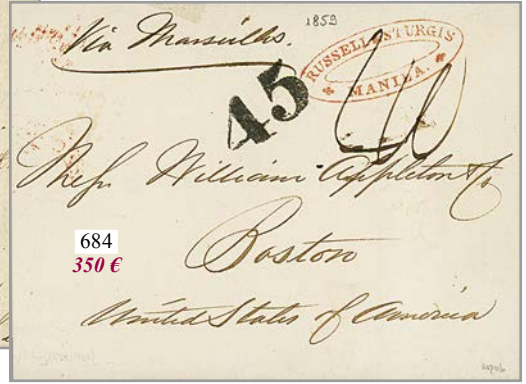 1859
Via Marseilles.
RUSSELL & STURGIS
MANILA.
45
Messrs. William Appleton & Co
684
350 €
Boston
United States of America